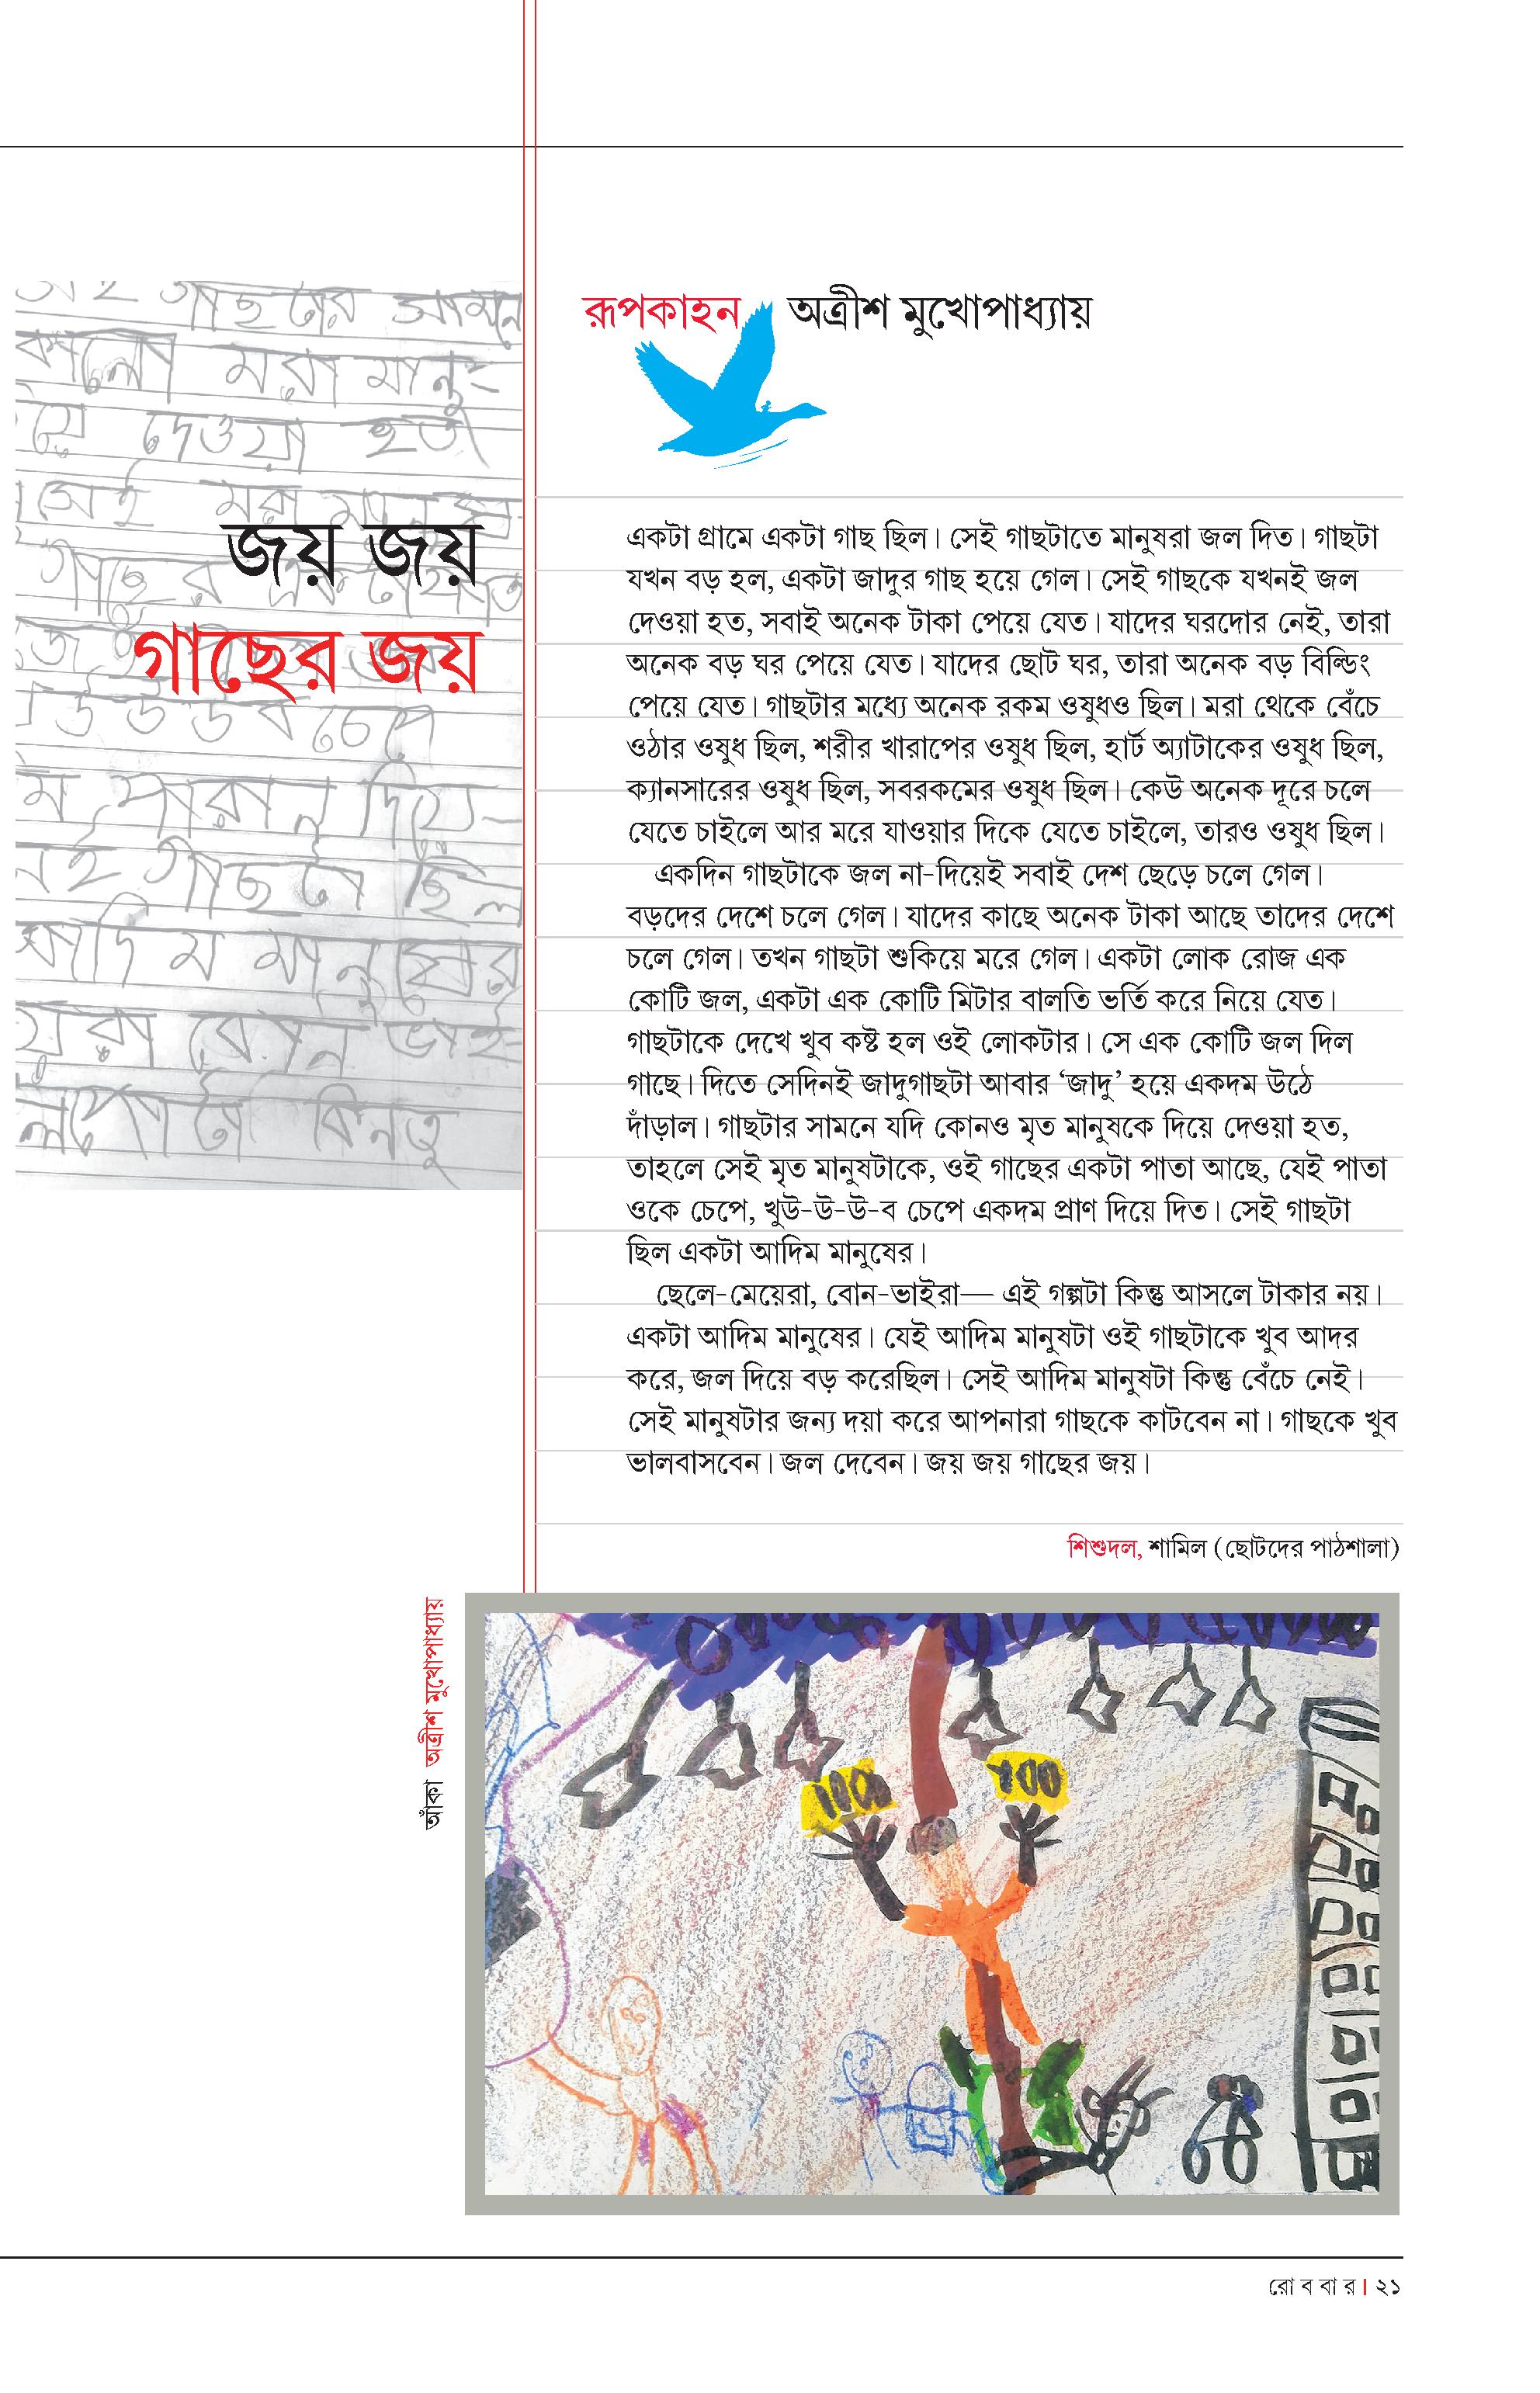 রূপকাহন অত্রীশ মুখোপাধ্যায়
গাছটার সামনে
মরা মানু-
দেওয়া হত
সেই মরা
গাছের
জয় জয়
গাছের জয়
উ উ উ ব চেপে
দিয়ে-
গাছটা ছিল
আদিম মানুষের
য়েরা বোন ভাই-
ল্পোটা কিনতু
একটা গ্রামে একটা গাছ ছিল। সেই গাছটাতে মানুষরা জল দিত। গাছটা
যখন বড় হল, একটা জাদুর গাছ হয়ে গেল। সেই গাছকে যখনই জল
দেওয়া হত, সবাই অনেক টাকা পেয়ে যেত। যাদের ঘরদোর নেই, তারা
অনেক বড় ঘর পেয়ে যেত। যাদের ছোট ঘর, তারা অনেক বড় বিল্ডিং
পেয়ে যেত। গাছটার মধ্যে অনেক রকম ওষুধও ছিল। মরা থেকে বেঁচে
ওঠার ওষুধ ছিল, শরীর খারাপের ওষুধ ছিল, হার্ট অ্যাটাকের ওষুধ ছিল,
ক্যানসারের ওষুধ ছিল, সবরকমের ওষুধ ছিল। কেউ অনেক দূরে চলে
যেতে চাইলে আর মরে যাওয়ার দিকে যেতে চাইলে, তারও ওষুধ ছিল।
একদিন গাছটাকে জল না-দিয়েই সবাই দেশ ছেড়ে চলে গেল।
বড়দের দেশে চলে গেল। যাদের কাছে অনেক টাকা আছে তাদের দেশে
চলে গেল। তখন গাছটা শুকিয়ে মরে গেল। একটা লোক রোজ এক
কোটি জল, একটা এক কোটি মিটার বালতি ভর্তি করে নিয়ে যেত।
গাছটাকে দেখে খুব কষ্ট হল ওই লোকটার। সে এক কোটি জল দিল
গাছে। দিতে সেদিনই জাদুগাছটা আবার ‘জাদু’ হয়ে একদম উঠে
দাঁড়াল। গাছটার সামনে যদি কোনও মৃত মানুষকে দিয়ে দেওয়া হত,
তাহলে সেই মৃত মানুষটাকে, ওই গাছের একটা পাতা আছে, যেই পাতা
ওকে চেপে, খুউ-উ-উ-ব চেপে একদম প্রাণ দিয়ে দিত। সেই গাছটা
ছিল একটা আদিম মানুষের।
ছেলে-মেয়েরা, বোন-ভাইরা— এই গল্পটা কিন্তু আসলে টাকার নয়।
একটা আদিম মানুষের। যেই আদিম মানুষটা ওই গাছটাকে খুব আদর
করে, জল দিয়ে বড় করেছিল। সেই আদিম মানুষটা কিন্তু বেঁচে নেই।
সেই মানুষটার জন্য দয়া করে আপনারা গাছকে কাটবেন না। গাছকে খুব
ভালবাসবেন। জল দেবেন। জয় জয় গাছের জয়।
শিশুদল, শামিল (ছোটদের পাঠশালা)
আঁকা অত্রীশ মুখোপাধ্যায়
1000
100
রোববার। ২১